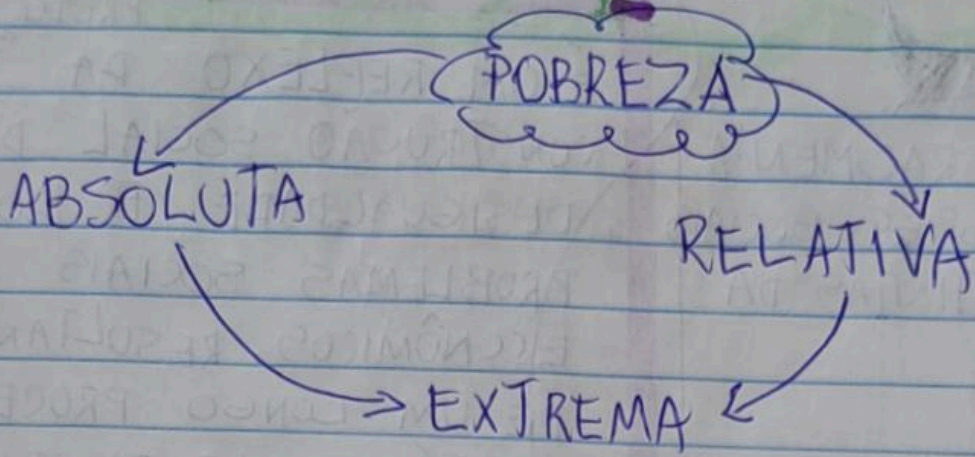 POBREZA
ABSOLUTA
RELATIVA
EXTREMA